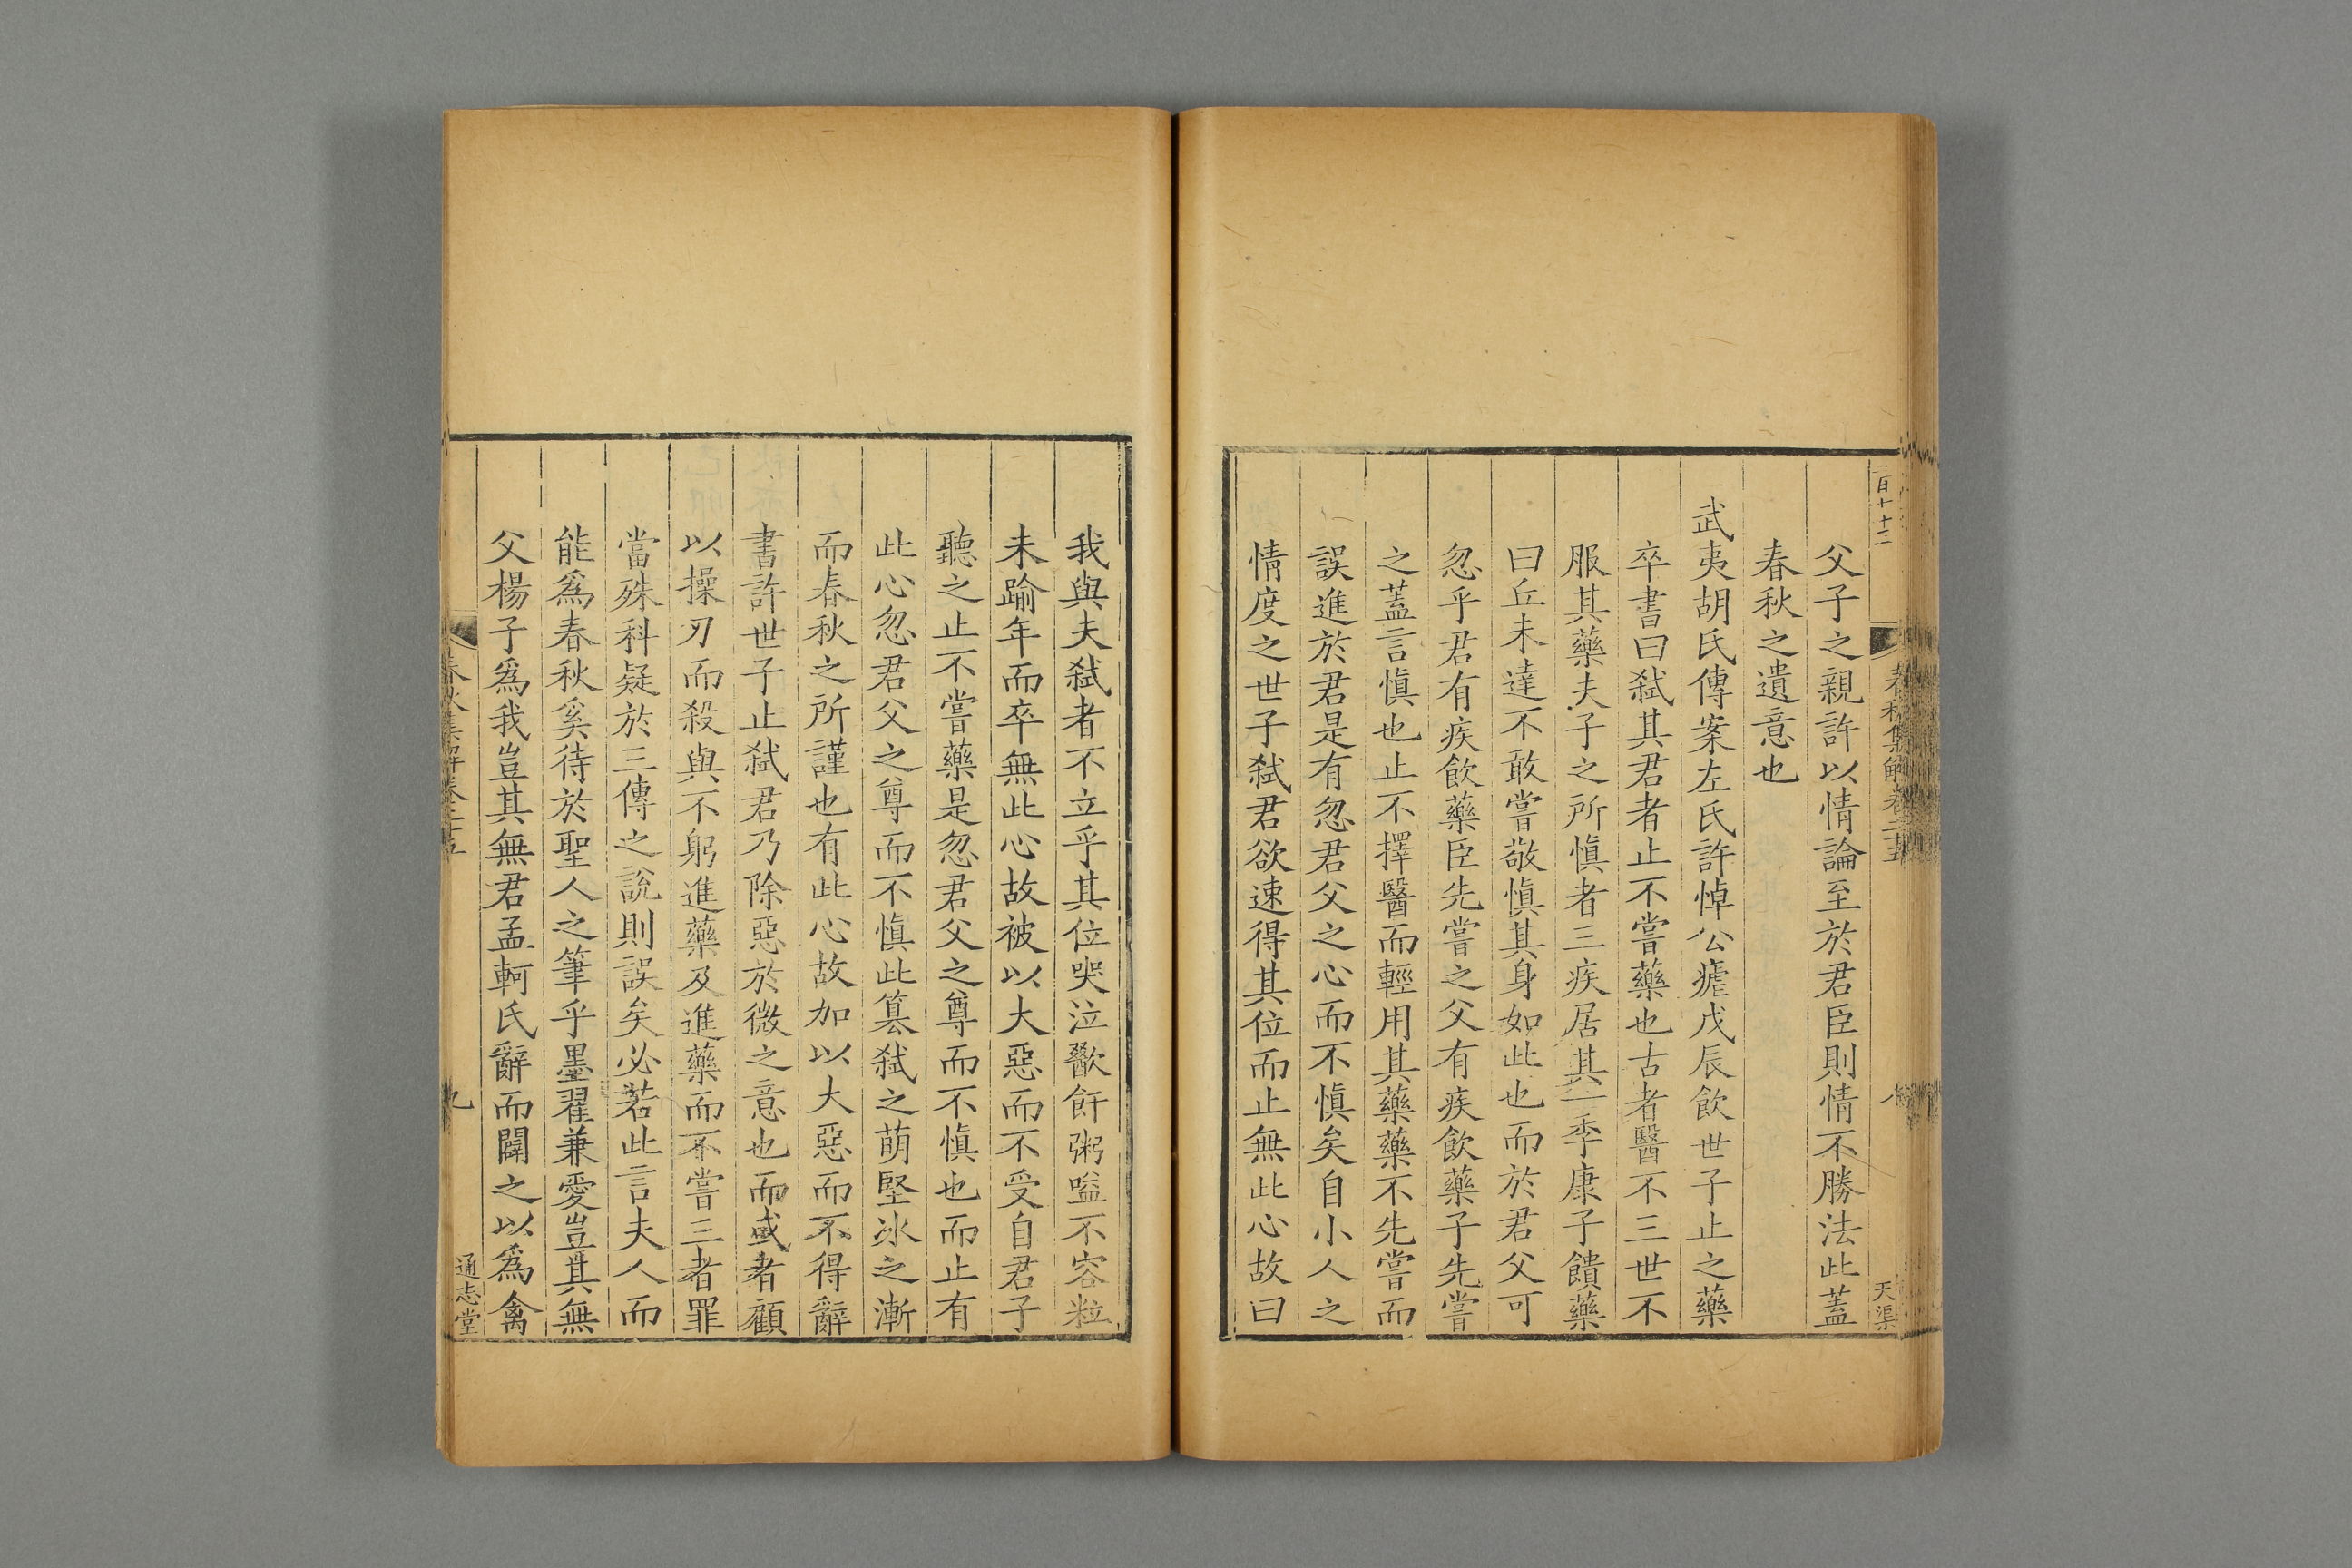 父子之親許以情論至於君臣則情不勝法此蓋
春秋之遺意也
武夷胡氏傳案左氏許悼公瘧戊辰飲世子止之藥
卒書曰弑其君者止不嘗藥也古者醫不三世不
服其藥夫子之所慎者三疾居其一季康子饋藥
曰丘未達不敢嘗敬慎其身如此也而於君父可
忽乎君有疾飲藥臣先嘗之父有疾飲藥子先嘗
之蓋言慎也止不擇醫而輕用其藥藥不先嘗而
誤進於君是有忽君父之心而不慎矣自小人之
情度之世子弑君欲速得其位而止無此心故曰
我與夫弑者不立乎其位哭泣歠飦粥嗌不容粒
未踰年而卒無此心故被以大惡而不受自君子
聽之止不嘗藥是忽君父之尊而不慎也而止有
此心忽君父之尊而不慎此篡弑之萌堅冰之漸
而春秋之所謹也有此心故加以大惡而不得辭
書許世子止弑君乃除惡於微之意也而或者顧
以操刃而殺與不躬進藥及進藥而不嘗三者罪
當殊科疑於三傳之說則誤矣必若此言夫人而
能爲春秋奚待於聖人之筆乎墨翟兼愛豈其無
父楊子爲我豈其無君孟軻氏辭而闢之以爲禽
春秋集解卷二十五
九
通志堂